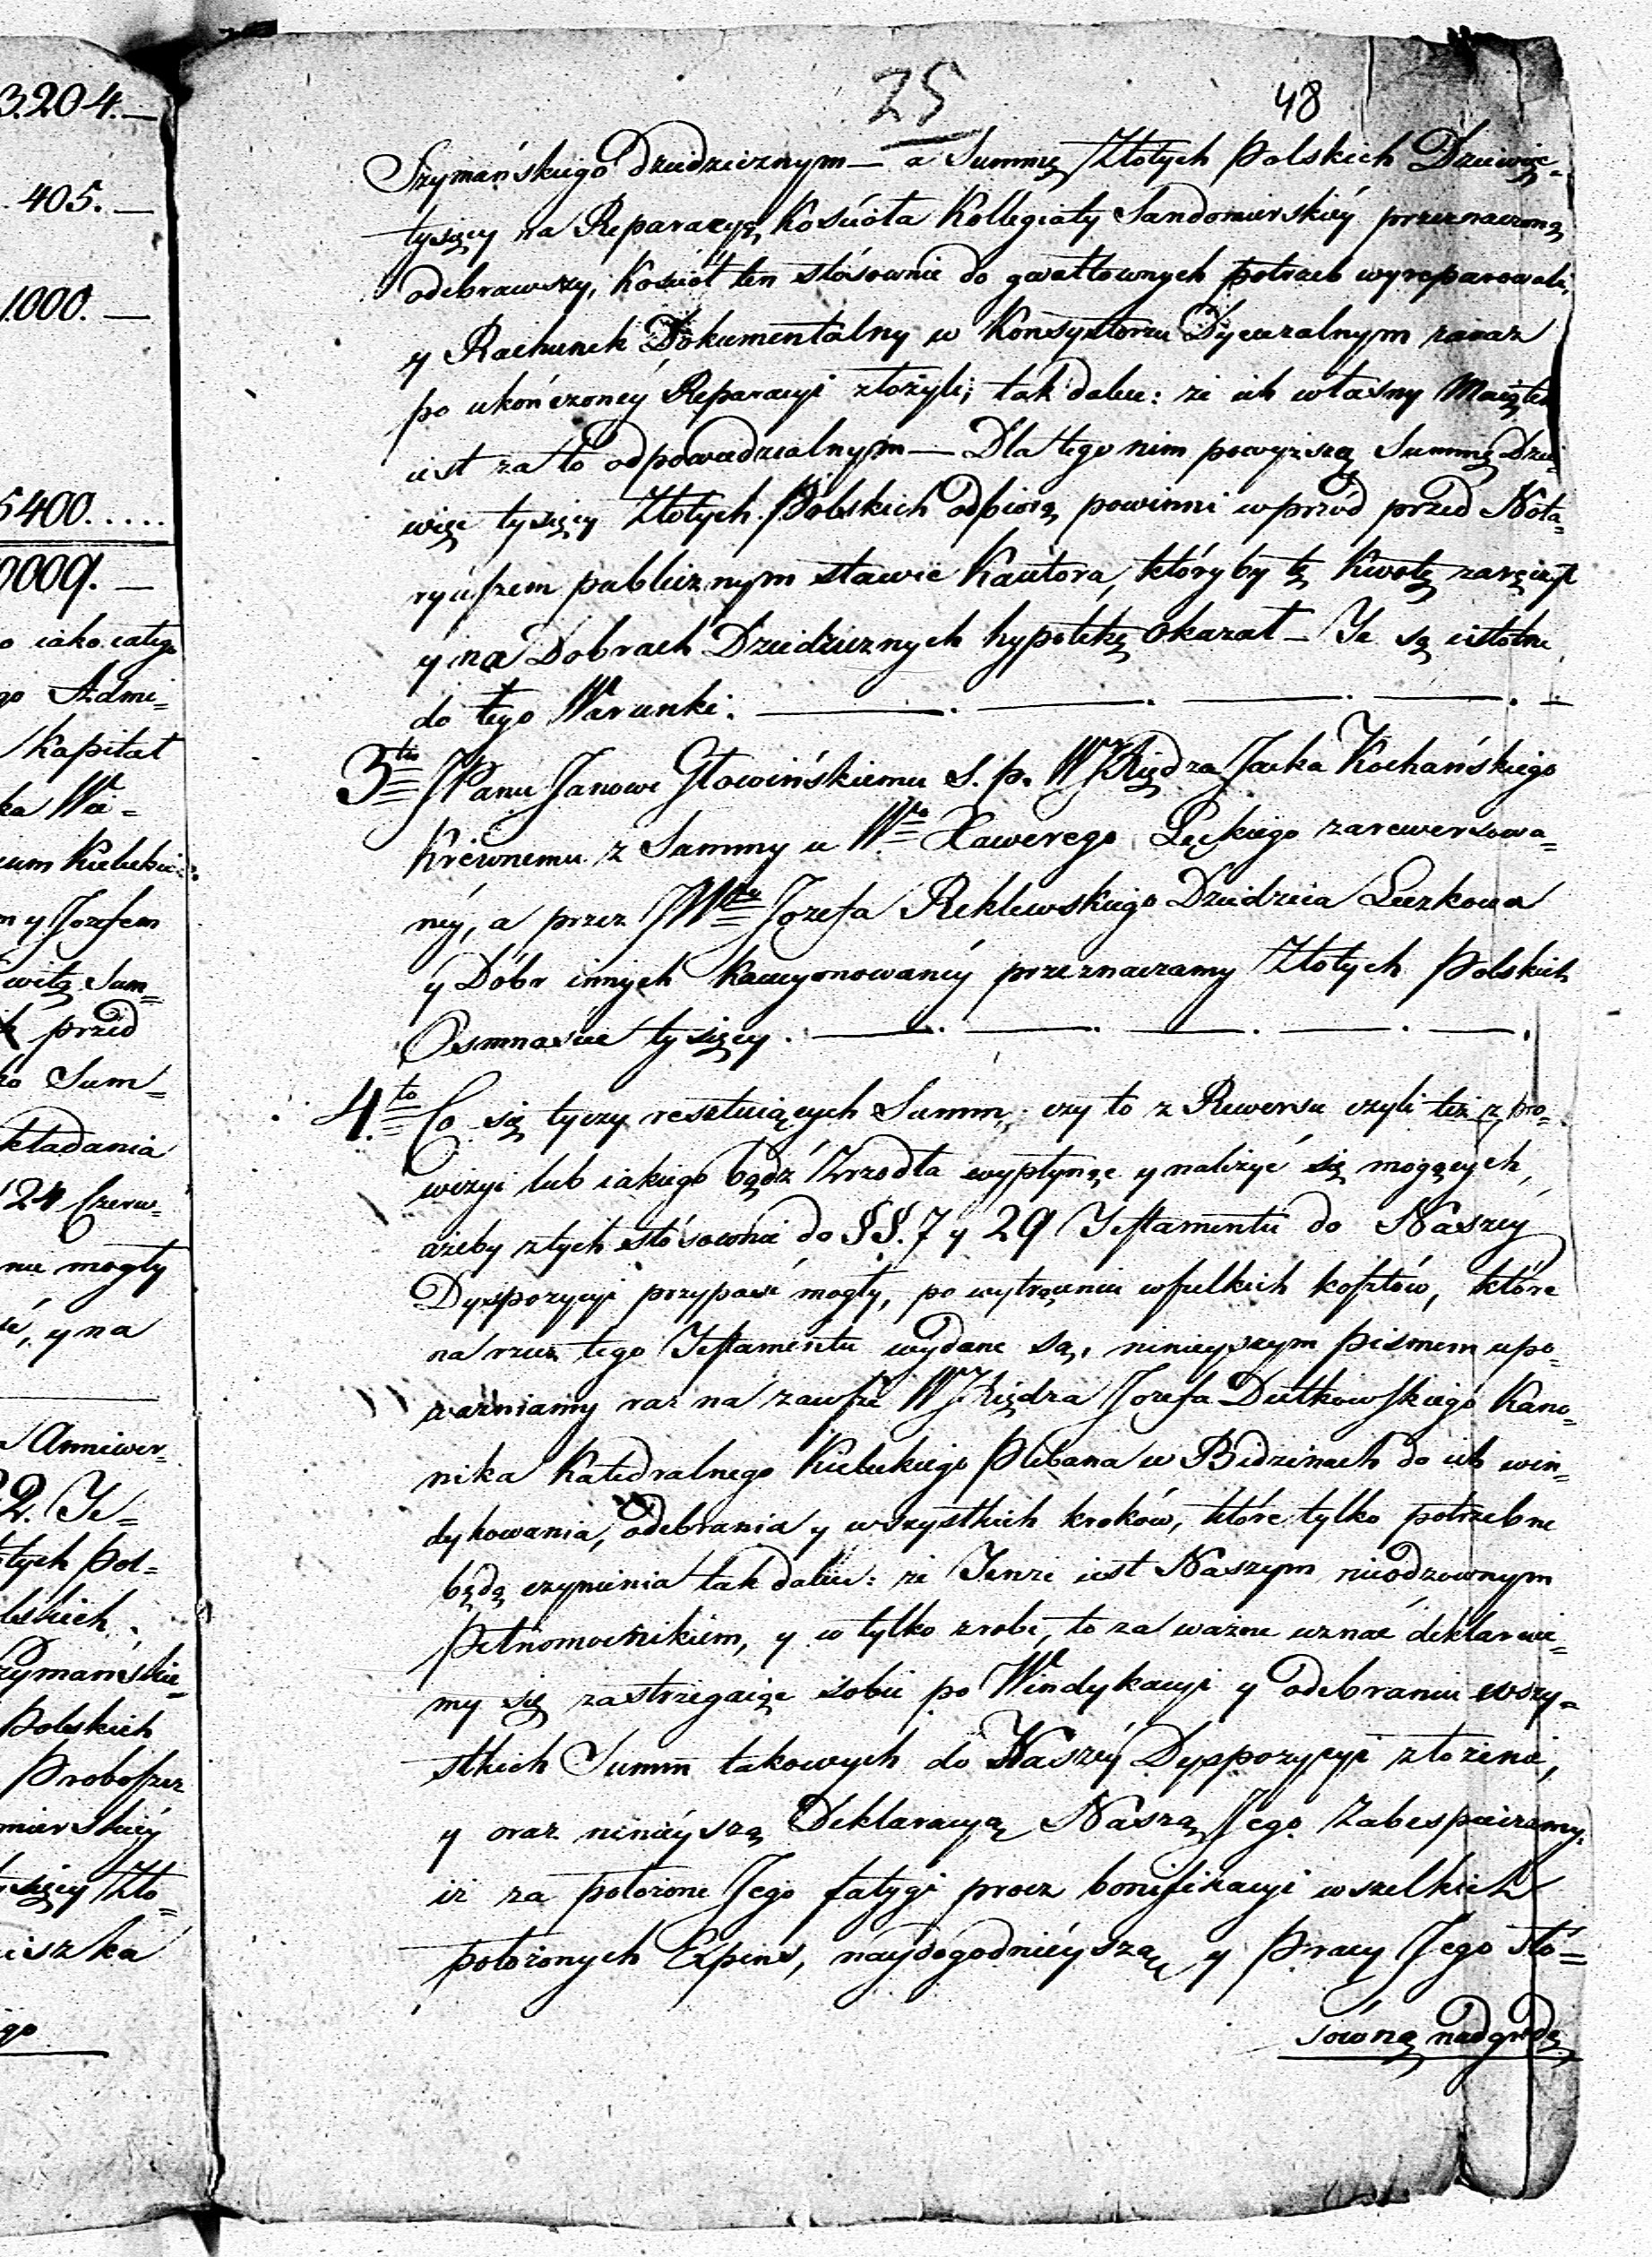 3.204.—
405.—
1.000.—
5400.....
0009.—
o iako całego
go Admi=
Kapitał
ka Wa=
m y Jozefem
przed
Sum=
kładania
24 Czerw=
nie mogły
y na
Anniwer=
2. Te=
tych Pol=
lskich.
zymańskie=
Polskich
Probofzcz
mierskiéy
tysięcy Zło=
iszka
go
25 48
Szymańskiego dziedzicznym — a Summę Złotych Polskich Dziewięć
tysięcy na Reparacyą Kościoła Kollegiaty Sandomierskiéy przeznaczoną
odebrawszy, Kościół ten stósownie do gwałtownych potrzeb wyreparowali,
y Rachunek Dokumentalny w Konsystorzu Dyecezalnym zaraz
po ukończonéy Reparacyi złożyli; tak dalece: że ich własny Maiątek
iest za to odpowiedzialnym — Dla tego nim powyższą Summę Dzie=
więć tysięcy Złotych Polskich odbiorą, powinni wprzód przed Nota=
ryufzem publicznym stawić Kautora, któryby tę Kwotę zaręczył
y na Dobrach Dziedzicznych hypotekę okazał — Te są istotne
do tego Warunki. —. —. —. —
3tio JPanu Janowi Głowińskiemu S. p. WJXiędza Jacka Kochańskiego
Krewnemu z Summy u Wgo Xawerego Łęckiego zarewersowa=
néy, a przez JWgo Jozefa Reklewskiego Dziedzica Leszkowa
y Dóbr innych kaucyonowanéy przeznaczamy Złotych Polskich
Osmnaście tysięcy. —. —. —. —. —.
4.to Co się tyczy resztuiących Summ, czy to z Rewersu czyli też z pro=
wizyi lub iakiego bądź Zrzodła wypłynąć y należyć się mogących,
ażeby z tych stósownie do §§. 7 y 29 Testamentu do Naszey
Dyspozycyi przypaść mogły, po wytrąceniu wfzelkich kofztów, które
na rzecz tego Testamentu wydane są, ninieyszym pismem upo=
ważniamy raz na zawfze WJXiędza Jozefa Dutkowskiego Kano=
nika Katedralnego Kieleckiego Plebana w Bidzinach do ich win=
dykowania, odebrania y wszystkich kroków, które tylko potrzebne
będą czynienia tak dalece: że Tenże iest Naszym nieodzownym
Pełnomocnikiem, y co tylko zrobi, to za ważne uznać deklaruie=
my się zastrzegaiąc sobie po Windykacyi y odebraniu wszy=
stkich Summ takowych do Naszéy Dyspozycyi złożenie,
y oraz ninieyszą Deklaracyą Naszą Jego Zabespieczamy,
iż za położone Jego fatygi procz bonifikacyi wszelkich
położonych Expens, naydogodnieyszą y Pracy Jego stó=
sówną nadgrodę